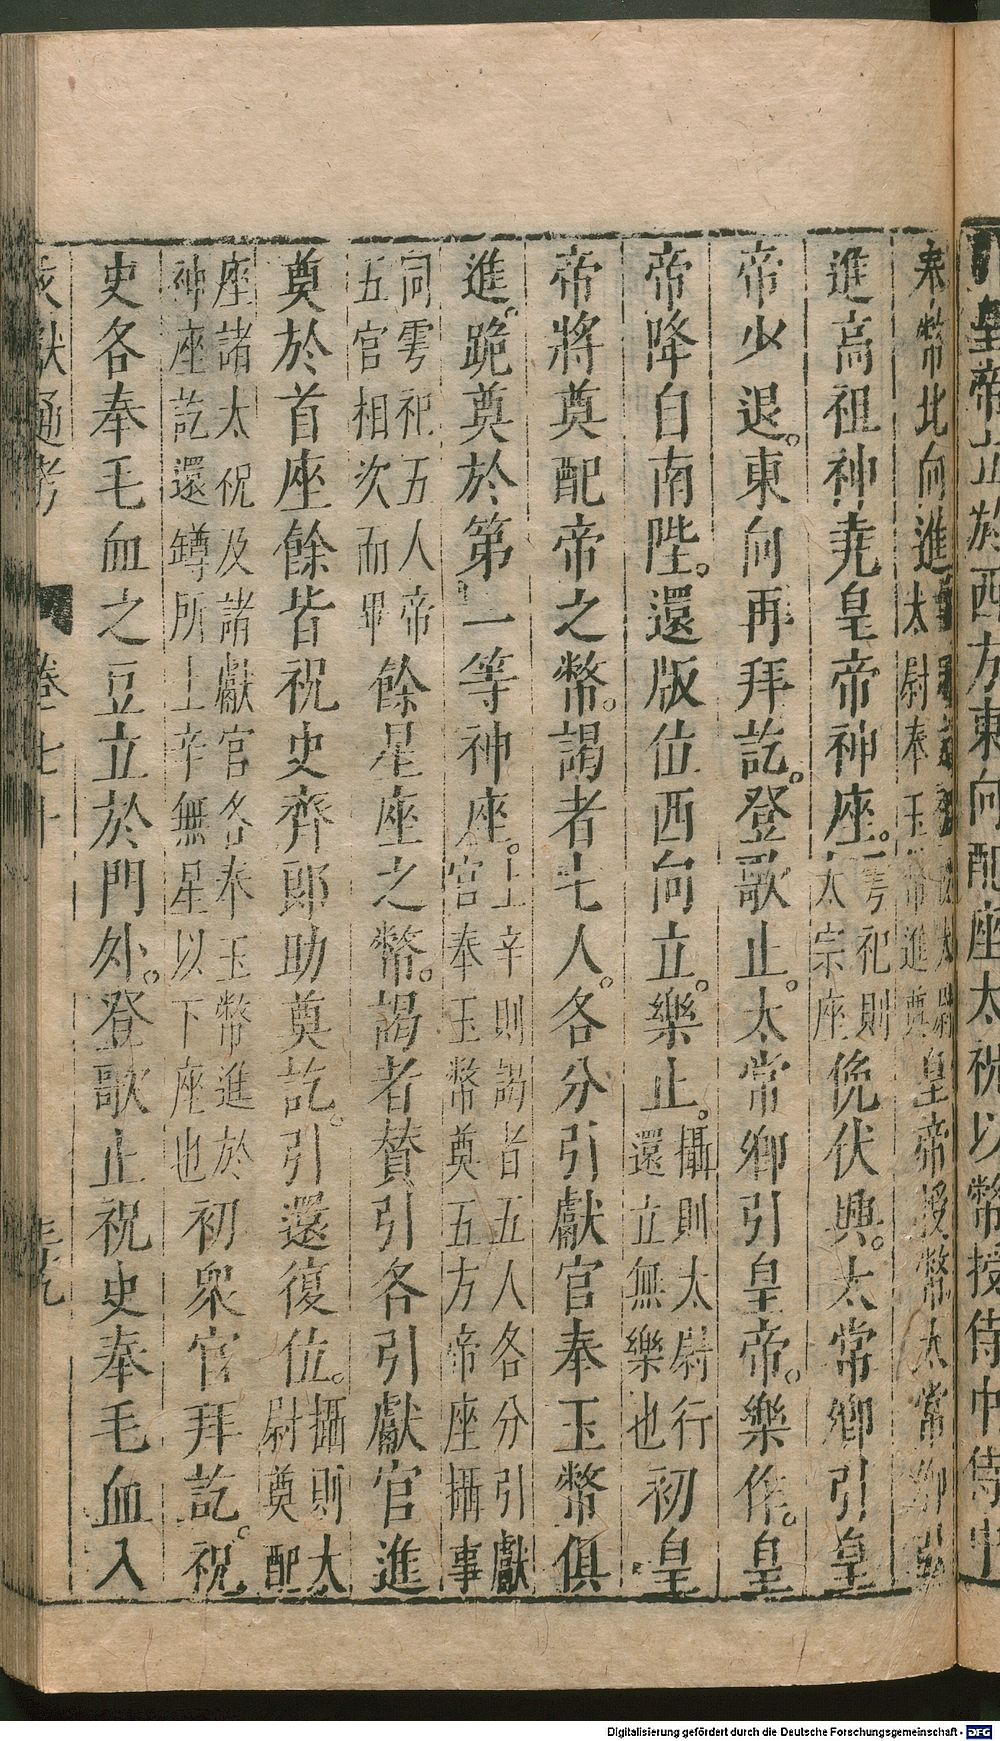 皇帝立於西方東向配座太祝以幣授侍中侍中
奉幣北向進太尉奉玉幣進奠皇帝授幣太常卿引皇
進高祖神堯皇帝神座。雩祀則太宗座俛伏興。太常卿引皇
帝少退。東向再拜訖。登歌止。太常卿引皇帝。樂作。皇
帝降自南陛。還版位西向立。樂止。攝則太尉行還立無樂也初皇
帝將奠配帝之幣。謁者七人。各分引獻官奉玉幣俱
進。跪奠於第一等神座。上辛則謁者五人各分引獻官奉玉幣奠五方帝座攝事
同雩祀五人帝五官相次而畢餘星座之幣。謁者贊引各引獻官進
奠於首座餘皆祝史齊郎助奠訖。引還復位。攝則太尉奠配
座諸太祝及諸獻官各奉玉幣進於神座訖還罇所上辛無星以下座也初眾官拜訖。祝
史各奉毛血之豆立於門外。登歌止祝史奉毛血入
文獻通考 卷七十
Digitalisierung gefördert durch die Deutsche Forschungsgemeinschaft - DFG